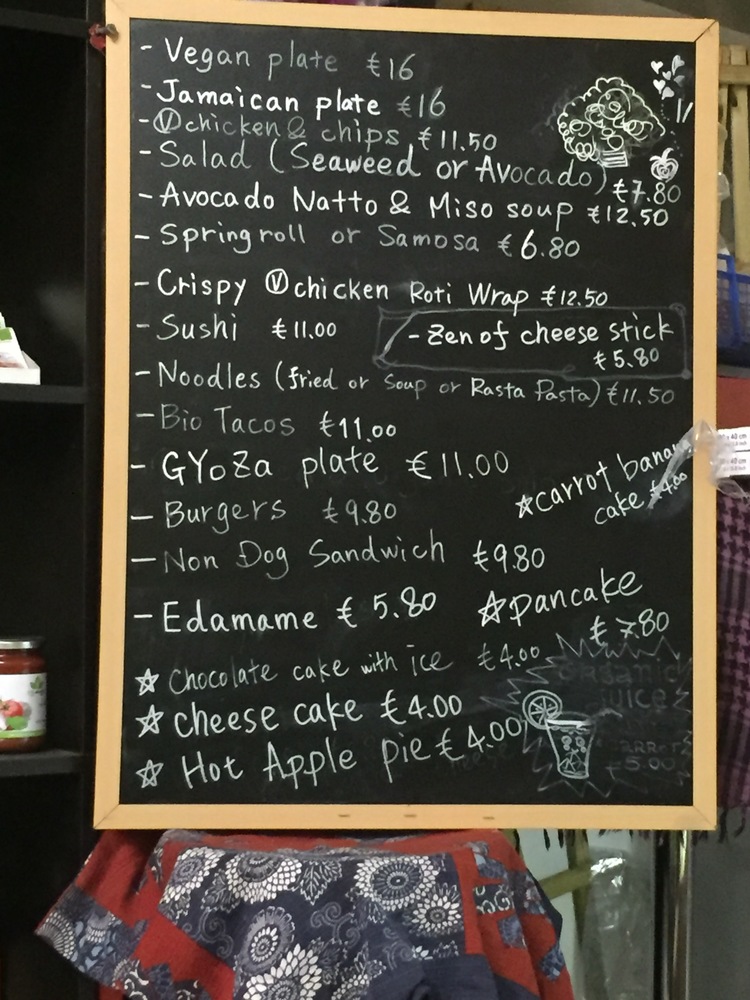 - Vegan plate €16
- Jamaican plate €16
- Ⓥchicken & chips €11.50
- Salad (Seaweed or Avocado) €7.80
- Avocado Natto & Miso soup €12.50
- Spring roll or Samosa €6.80
- Crispy Ⓥchicken Roti Wrap €12.50
- Sushi €11.00
- Zen of cheese stick
€5.80
- Noodles (fried or Soup or Rasta Pasta) €11.50
- Bio Tacos €11.00
- GYoZa plate €11.00
☆carrot banan
cake €4.00
- Burgers €9.80
- Non Dog Sandwich €9.80
- Edamame €5.80
☆pancake
€7.80
☆ Chocolate cake with ice €4.00
☆ cheese cake €4.00
☆ Hot Apple pie €4.00
Organic
Juice
€5.00